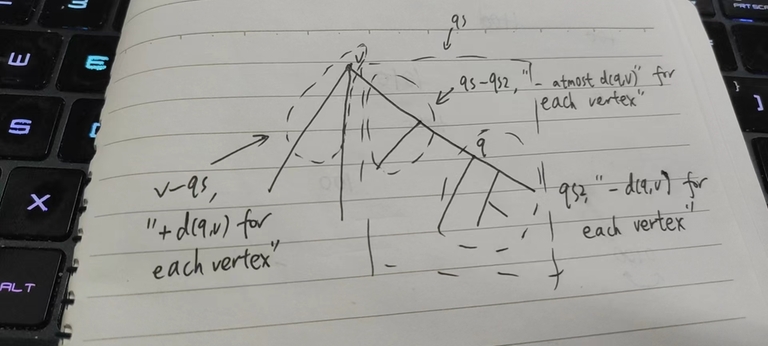 qs
v
qs-qs2, "- atmost d(q,v)" for
each vertex"
q
v-qs,
"+d(q,v) for
each vertex"
qs2, "-d(q,v) for
each vertex"
W
E
S
X
ALT
PRTSC
}
]